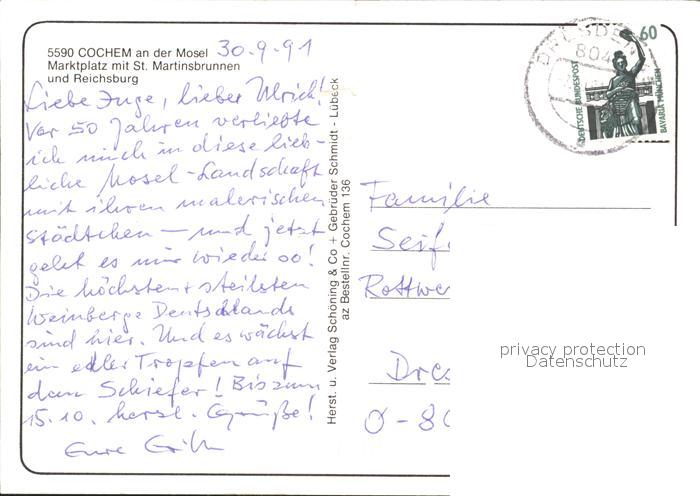 5590 COCHEM an der Mosel
Marktplatz mit St. Martinsbrunnen
und Reichsburg
30.9.91
Liebe Inge, lieber Ulrich!
Vor 50 Jahren verliebte
ich mich in diese lieb-
liche Mosel-Landschaft
mit ihren malerischen
Städtchen — und jetzt
geht es mir wieder so!
Die höchsten + steilsten
Weinberge Deutschlands
sind hier. Und es wächst
ein edler Tropfen auf
dem Schiefer! Bis zum
15.10. herzl. Grüße!
Eure
Herst. u. Verlag Schöning & Co + Gebrüder Schmidt - Lübeck
az Bestellnr. Cochem 136
DRESDEN
804
60
DEUTSCHE BUNDESPOST
BAVARIA MÜNCHEN
Familie
Seif
Rottwe
Dres
O-80
privacy protection
Datenschutz